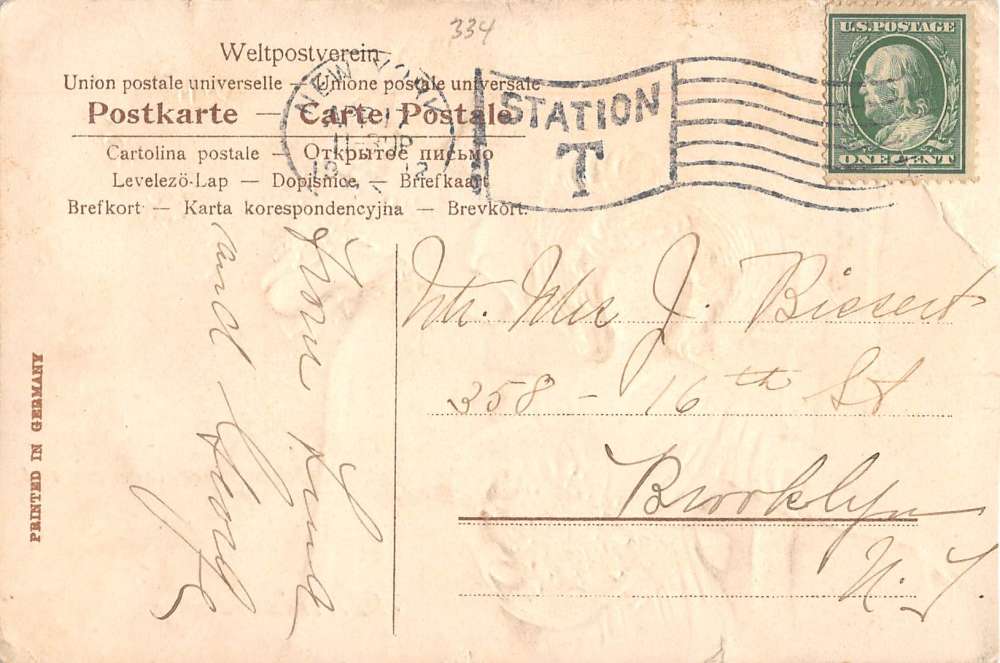 334
Weltpostverein
Union postale universelle — Unione postale universale
Postkarte — Carte Postale
Cartolina postale — Открытое письмо
Levelezö-Lap — Dopisnice — Briefkaart
Brefkort — Karta korespondencyjna — Brevkort.
NEW YORK
APR
STATION
T
U.S. POSTAGE
ONE CENT
From
and George
Mr. Mrs J. Bissert
358 - 16th St
Brooklyn
N.Y.
PRINTED IN GERMANY